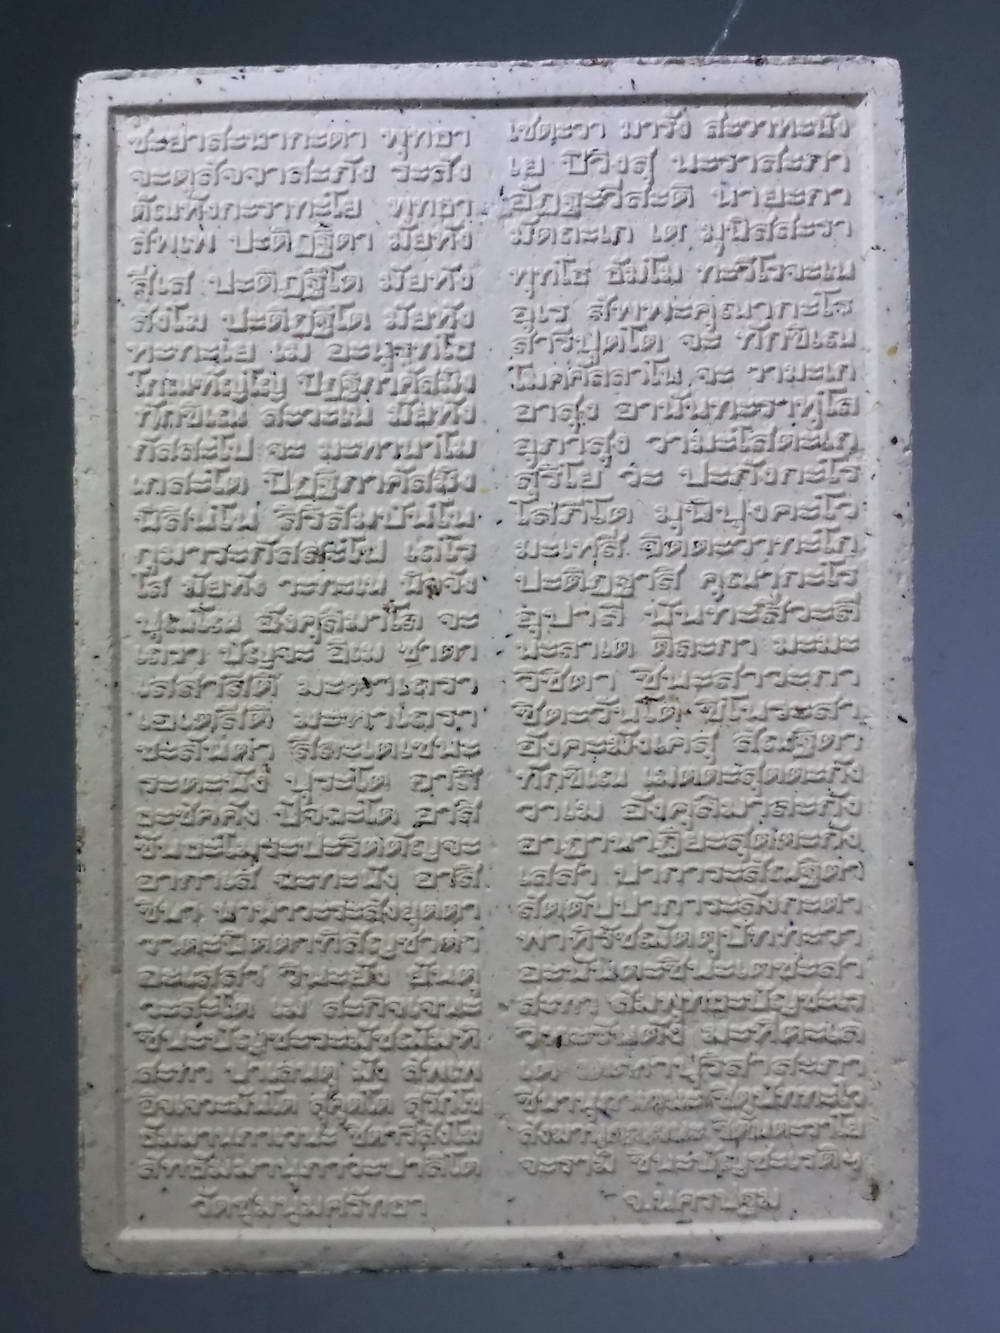 ชะยาสะนากะตา พุทธา เชตะวา มารัง สะวาหะนัง
จะตุสัจจาสะภัง ระสัง เย ปิวิงสุ นะราสะภา
ตัณหังกะราทะโย พุทธา อัฏฐะวีสะติ นายะกา
สัพเพ ปะติฏฐิตา มัยหัง มัตถะเก เต มุนิสสะรา
สีเส ปะติฏฐิโต มัยหัง พุทโธ ธัมโม ทะวิโรจะเน
สังโฆ ปะติฏฐิโต มัยหัง อุเร สัพพะคุณากะโร
หะทะเย เม อะนุรุทโธ สารีปุตโต จะ ทักขิเณ
โกณฑัญโญ ปิฏฐิภาคัสมิง โมคคัลลาโน จะ วามะเก
ทักขิเณ สะวะเน มัยหัง อาสุง อานันทะราหุโล
กัสสะโป จะ มะหานาโม อุภาสุง วามะโสตะเก
เกสะโต ปิฏฐิภาคัสมิง สุริโย วะ ปะภังกะโร
นิสินโน สิริสัมปันโน โสภิโต มุนิปุงคะโว
กุมาระกัสสะโป เถโร มะเหสี จิตตะวาทะโก
โส มัยหัง วะทะเน นิจจัง ปะติฏฐาสิ คุณากะโร
ปุณโณ อังคุลิมาโล จะ อุปาลี นันทะสีวะลี
เถรา ปัญจะ อิเม ชาตา นะลาเต ติละกา มะมะ
เสสาสีติ มะหาเถรา วิชิตา ชินะสาวะกา
เอเตสีติ มะหาเถรา ชิตะวันโต ชิโนระสา
ชะลันตา สีละเตเชนะ อังคะมังเคสุ สัณฐิตา
ระตะนัง ปุระโต อาสิ ทักขิเณ เมตตะสุตตะกัง
ธะชัคคัง ปัจฉะโต อาสิ วาเม อังคุลิมาละกัง
ขันธะโมระปะริตตัญจะ อาฏานาฏิยะสุตตะกัง
อากาเส ฉะทะนัง อาสิ เสสา ปาการะสัณฐิตา
ชินา นานาวะระสังยุตตา สัตตัปปาการะลังกะตา
วาตะปิตตาทิสัญชาตา พาหิรัชฌัตตุปัททะวา
อะเสสา วินะยัง ยันตุ อะนันตะชินะเตชะสา
วะสะโต เม สะกิจเจนะ สะทา สัมพุทธะปัญชะเร
ชินะปัญชะระมัชฌัมหิ วิหะรันตัง มะหีตะเล
สะทา ปาเลนตุ มัง สัพเพ เต มะหาปุริสาสะภา
อิจเจวะมันโต สุคุตโต สุรักโข ชินานุภาเวนะ ชิตุปัททะโว
ธัมมานุภาเวนะ ชิตาริสังโฆ สังฆานุภาเวนะ ชิตันตะราโย
สัทธัมมานุภาวะปาลิโต จะรามิ ชินะปัญชะเรติฯ
วัดชุมนุมศรัทธา จ.นครปฐม